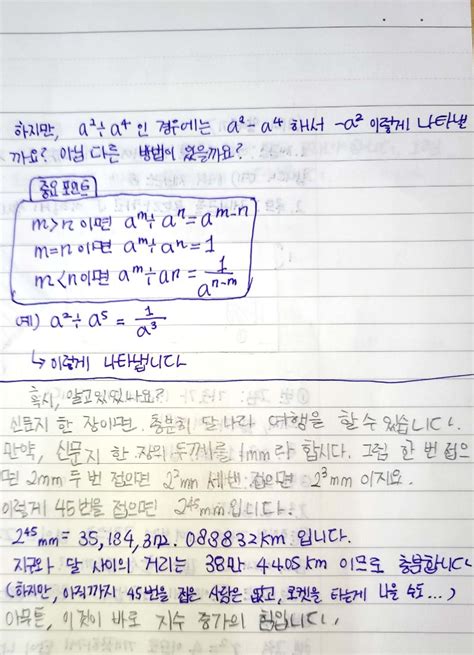 하지만, a²÷a⁴ 인 경우에는 a²-a⁴ 해서 -a² 이렇게 나타낼
까요? 아님 다른 방법이 있을까요?
중요 포인트
m>n 이면 aᵐ÷aⁿ=aᵐ⁻ⁿ
m=n 이면 aᵐ÷aⁿ=1
m<n이면 aᵐ÷an=1/aⁿ⁻ᵐ
예) a²÷a⁵=1/a³
↳이렇게 나타냅니다
혹시, 알고 있었나요?
신문지 한 장이면, 충분히 달나라 여행을 할 수 있습니다.
만약, 신문지 한 장의 두께를 1mm라 합시다. 그럼 한 번 접으
면 2mm 두 번 접으면 2²mm 세 번 접으면 2³mm 이지요.
이렇게 45번을 접으면 2⁴⁵mm입니다.
2⁴⁵mm=35,184,372.088832km 입니다.
지구와 달 사이의 거리는 38만 4405km 이므로 충분합니다
(하지만, 아직까지 45번을 접은 사람은 없고, 로켓을 타는게 나을 수도...)
아무튼, 이것이 바로 지수 증가의 힘입니다.